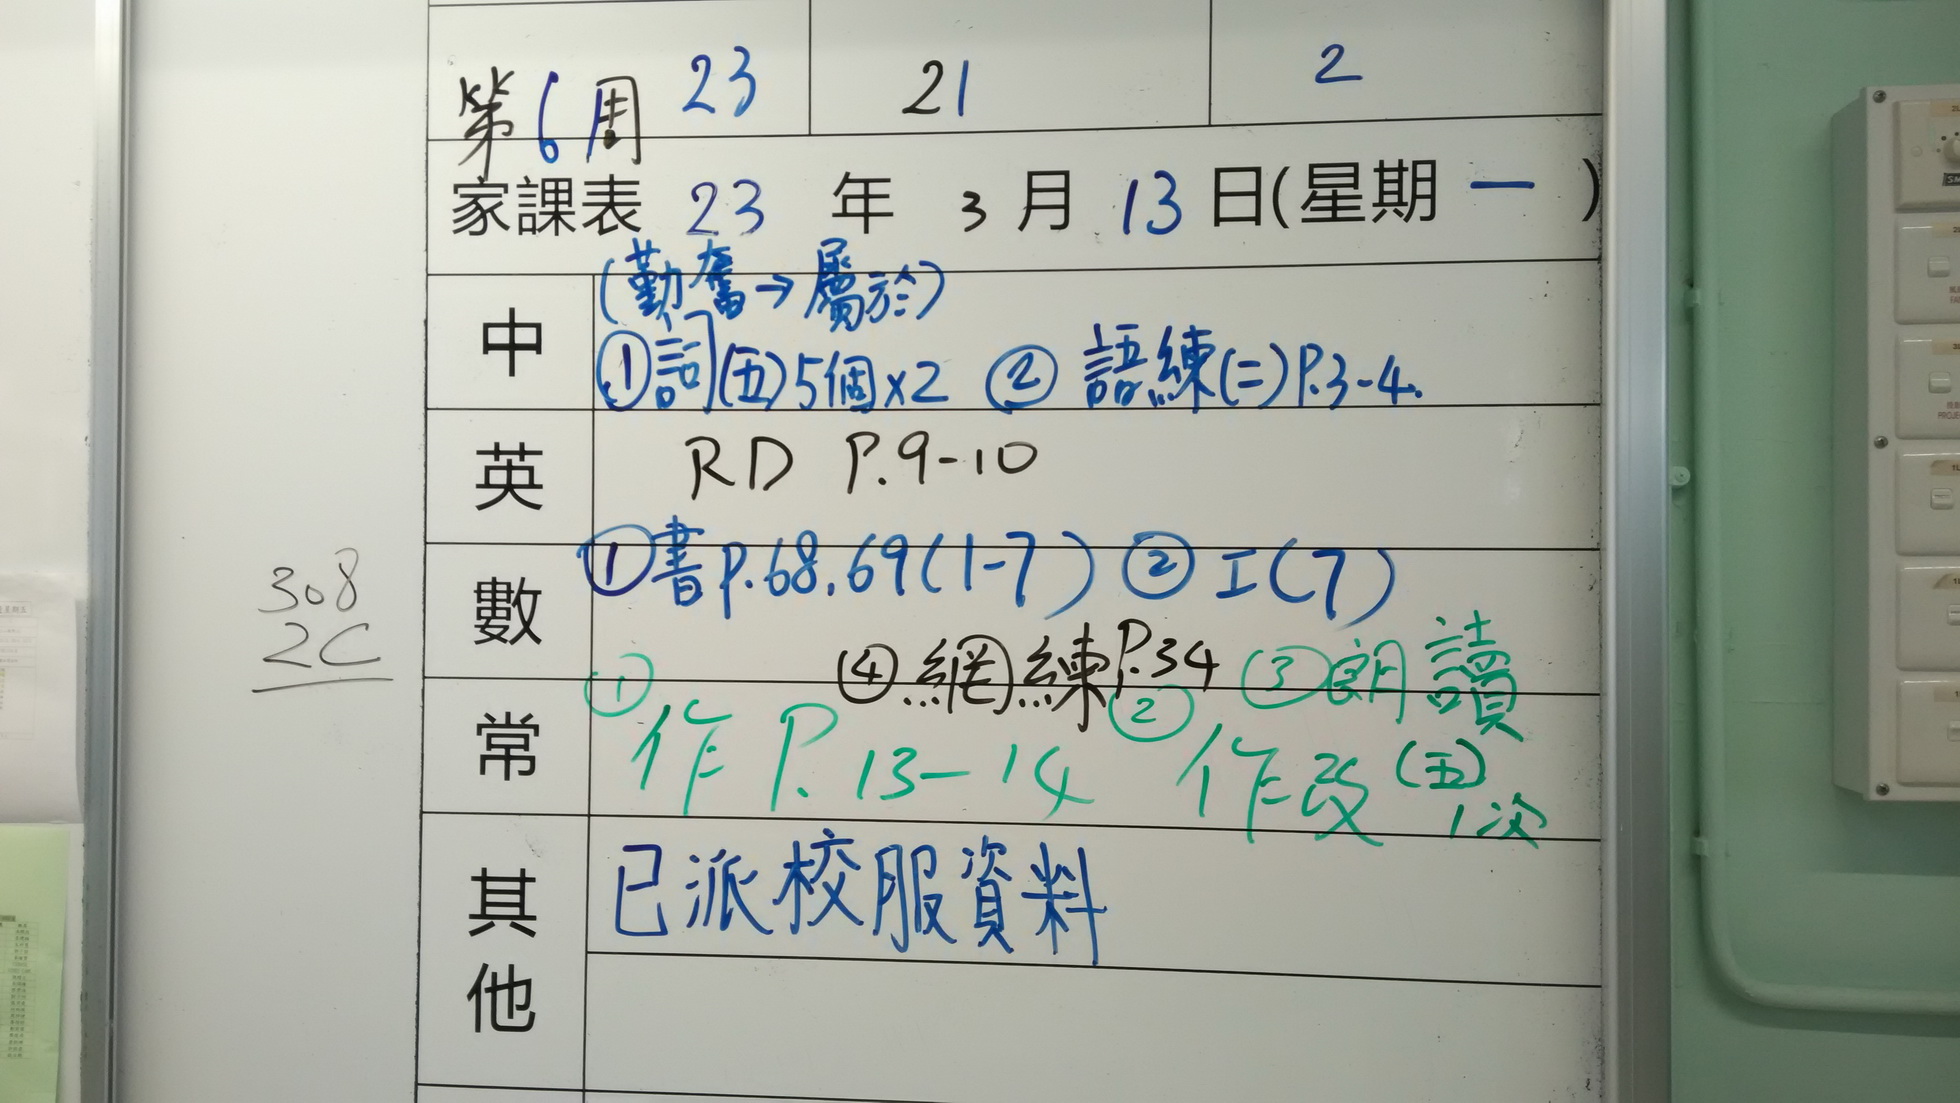 23 21 2
第6周
家課表 23 年 3 月 13 日(星期 一 )
中
(勤奮→屬於)
①詞(五)5個x2 ② 語練(二)P.3-4.
英
RD P.9-10
數
①書P.68.69(1-7) ② I(7)
④網練P.34 ③朗讀
常
① 作 P.13-14 ② 作改(五)
1次
其他
已派校服資料
308
2C